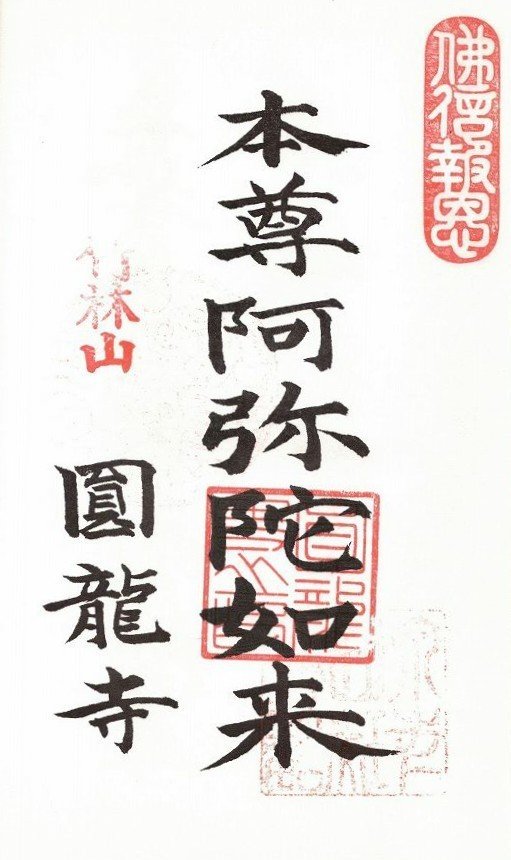 佛報恩
本尊阿弥陀如来
竹林山
圓龍寺